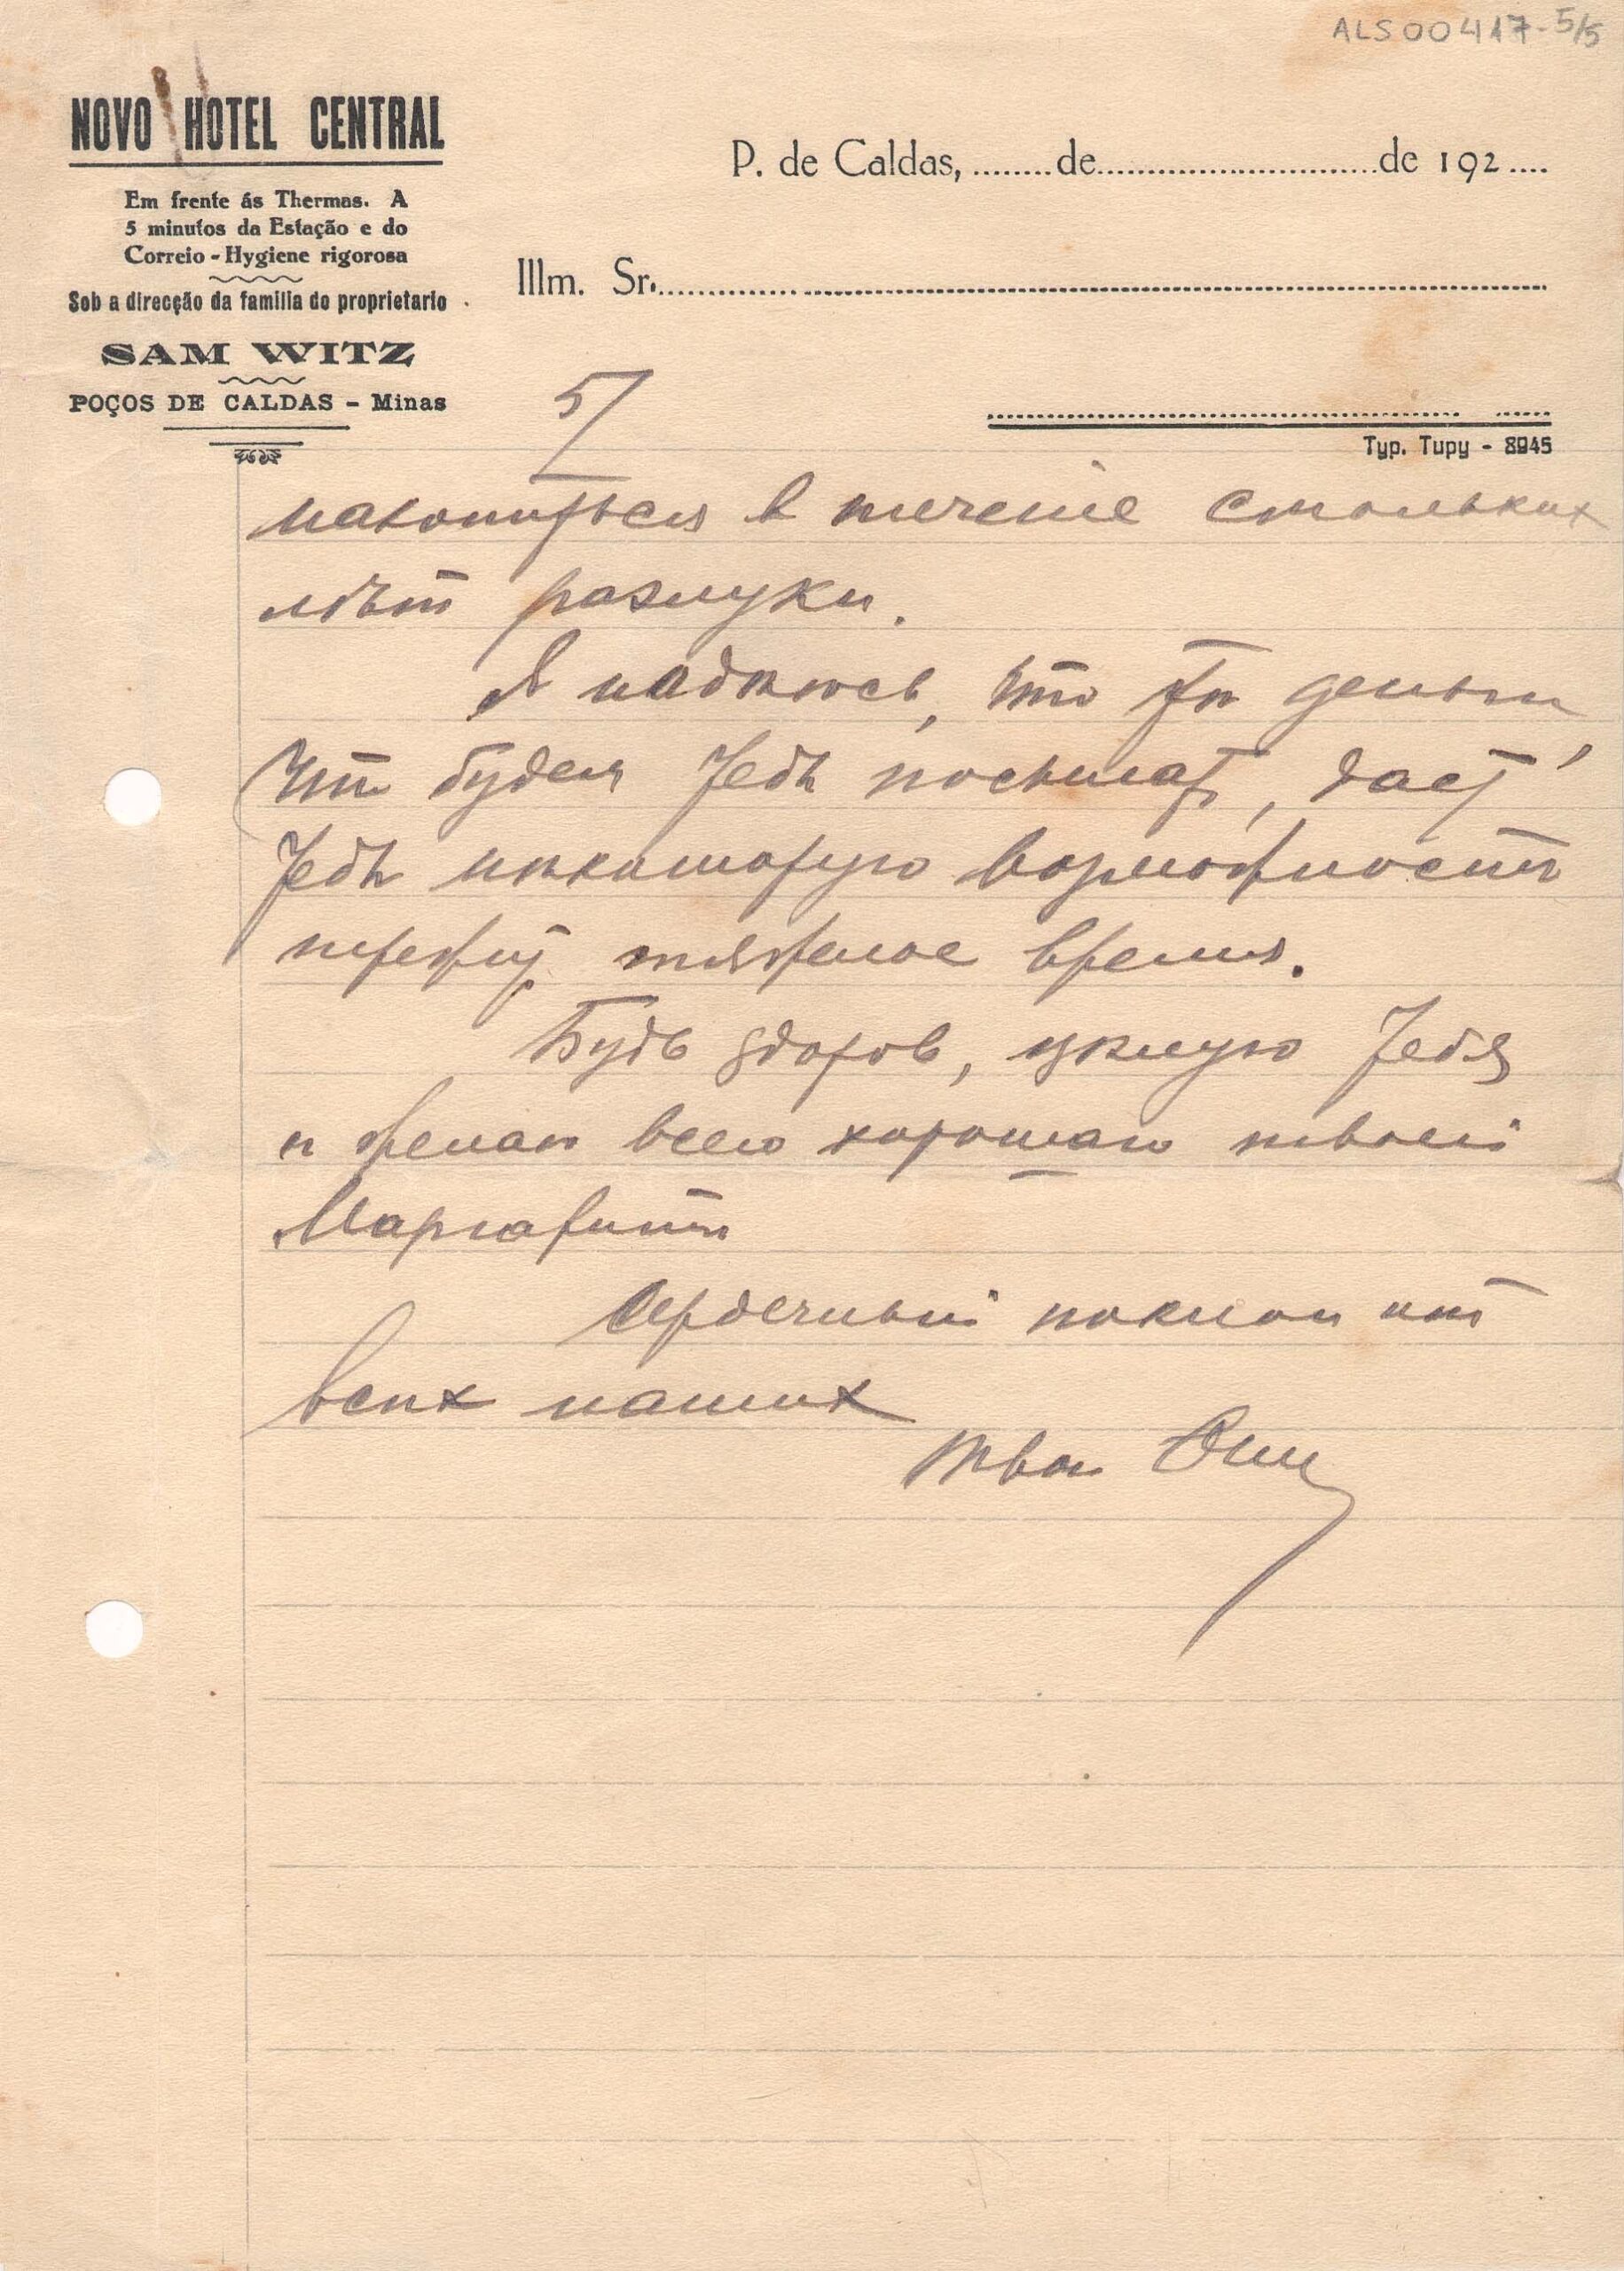 ALS00417-5/5
NOVO HOTEL CENTRAL
Em frente ás Thermas. A
5 minutos da Estação e do
Correio - Hygiene rigorosa
Sob a direcção da familia do proprietario
SAM WITZ
POÇOS DE CALDAS - Minas
P. de Caldas, ........ de ............................ de 192 ....
Illm. Sr. ............................
Typ. Tupy - 8945
5/
накопиться в течение стольких
лѣт разлуки.
Я надѣюсь, что тѣ деньги,
что будем Тебѣ посылать, даст
Тебѣ нѣкоторую возможность
пережить тяжелое время.
Будь здоров, цѣлую Тебя
и желаю всего хорошаго твоей
Маргарите
Сердечный поклон от
всѣх наших
Твой